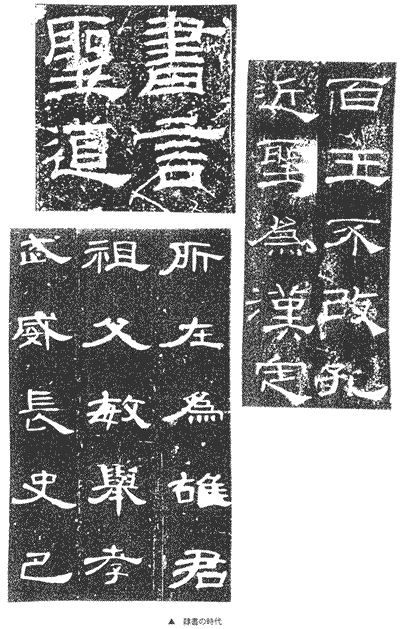 百王不改孔
近聖為漢定
書言
聖道
所在為雄君
祖父敏舉孝
武威長史巴
▲ 隷書の時代